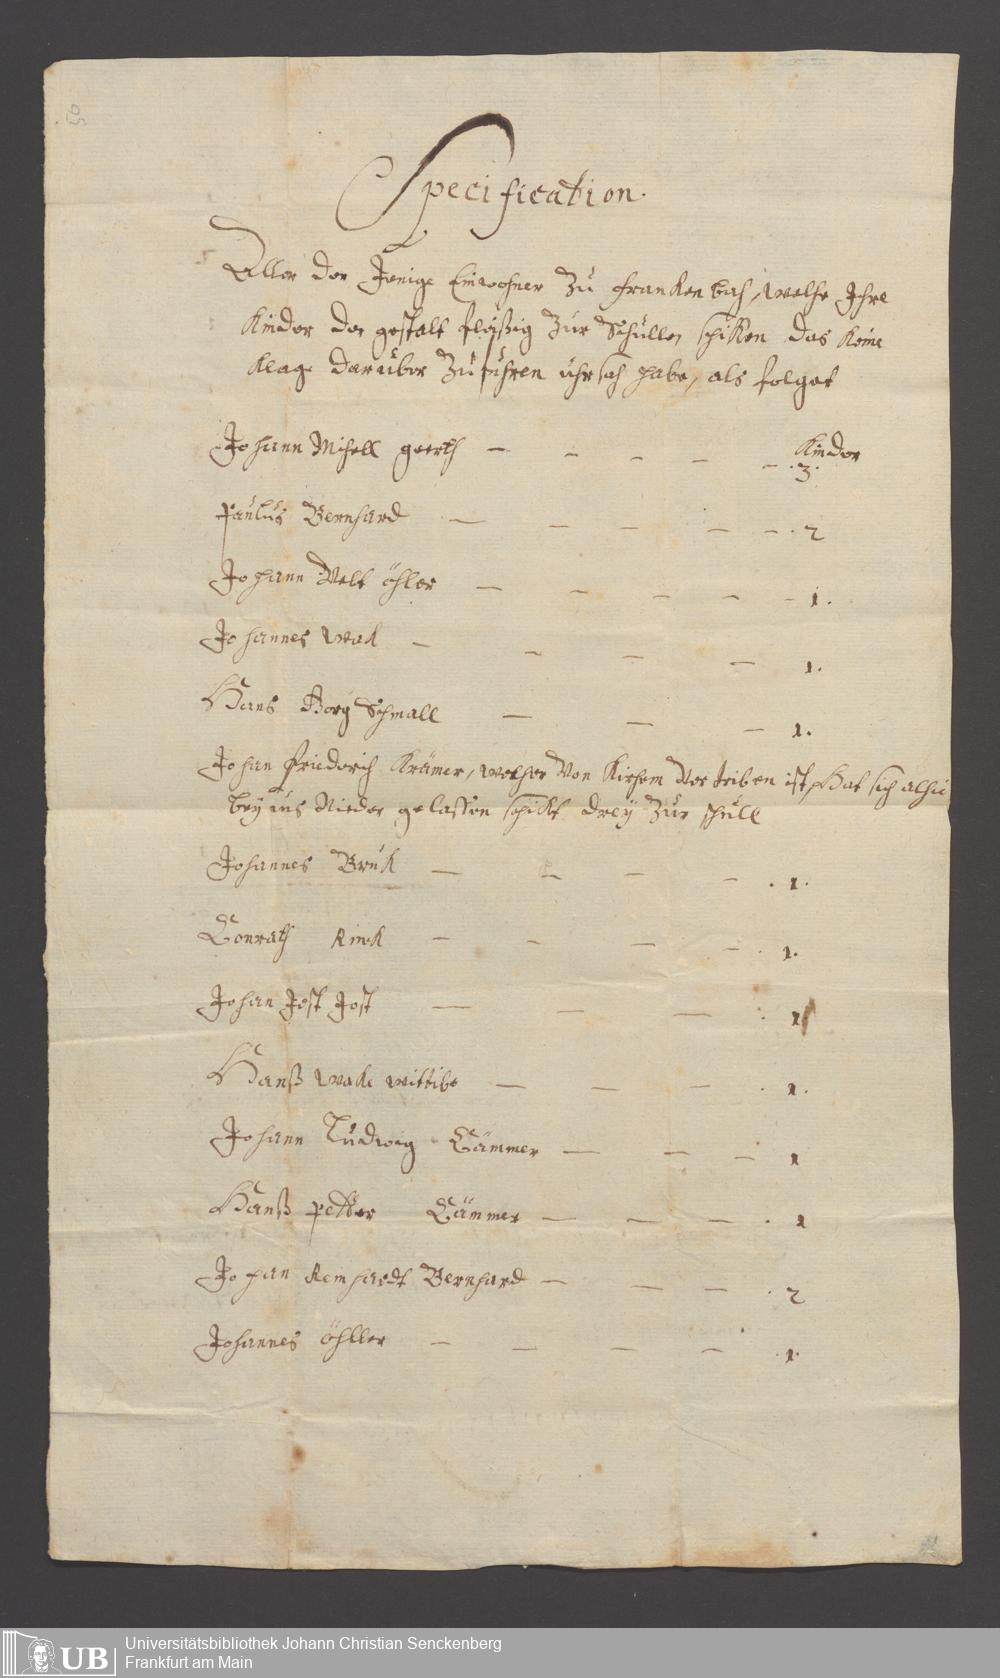 Specification.
Aller der Jenige Einwohner Zu franckenbach, welche Ihre
Kinder der gestalt fleißig Zur Schullen schicken das Keine
Klage darüber Zuführen uhrsach habe, als folget
Johann Michell geerth — — — — Kinder
— . 3 .
Paulus Bernhard — — — — — . 2
Johann Velt öhler — — — — — 1 .
Johannes Wack — — — — 1 .
Hans Görg Schmall — — — 1 .
Johan friederich Krämer, welcher Von Kirchem Vertriben ist, Hat sich alhie
bey uns Nieder gelassen schickt drey Zur schull
Johannes Bruck — — — — . 1 .
Conrath Rinck — — — — . 1 .
Johan Jost Jost — — — . 1
Hanß Wacke wittibe — — — . 1 .
Johann Ludwig Cämmer — — — 1
Hanß petter Cämmer — — — . 1
Johan Reinhardt Bernhard — — — . 2
Johannes öhller — — — — . 1 .
UB
Universitätsbibliothek Johann Christian Senckenberg
Frankfurt am Main